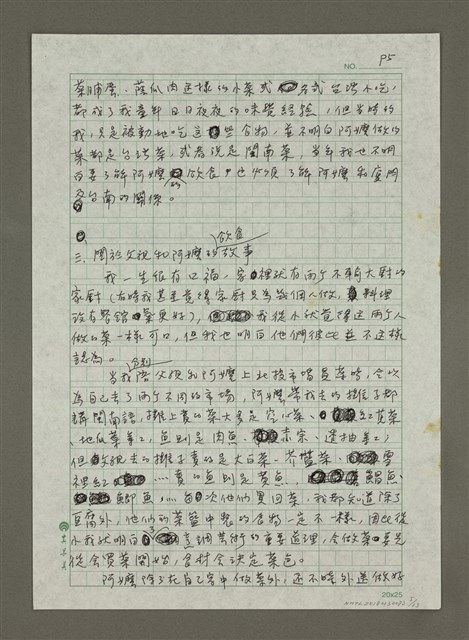 P5
NO.
菜脯蛋、蔭瓜肉這樣的小菜或各式台灣小吃，
都成了我童年日日夜夜的味覺經驗，但當時的
我，只是被動地吃這些食物，並不明白阿嬤做的
菜都是台灣菜，或者說是閩南菜，當年我也不明
白要了解阿嬤的飲食，也必須了解阿嬤和廈門
及台南的關係。
三、關於父親和阿嬤的飲食故事
我一生很有口福，家裡就有兩個不輸大廚的
家廚（有時我甚至覺得家廚只為幾個人做，料理
說有餐館菜更好），我從小就覺得這兩個人
做的菜一樣可口，但我也明白他們彼此並不這樣
認為。
當我陪父親和阿嬤分別上北投市場買菜時，會以
為自己去了兩個不同的市場，阿嬤帶我去的攤子都
講閩南語，攤上賣的菜大多是空心菜、紅莧菜
、地瓜葉等，魚則是肉魚、赤宗、透抽等，
但父親去的攤子賣的是大白菜、芥藍菜、雪
裡紅……賣的魚則是黃魚、鯧魚、
鯽魚……每次他們買回菜，我都知道除了
豆腐外，他們的菜籃中裝的食物一定不一樣，因此從
小我就明白了烹調藝術的重要道理，會做菜要先
從會買菜開始，食材會決定菜色。
阿嬤除了在自己家中做菜外，還不時外送做好
20x25